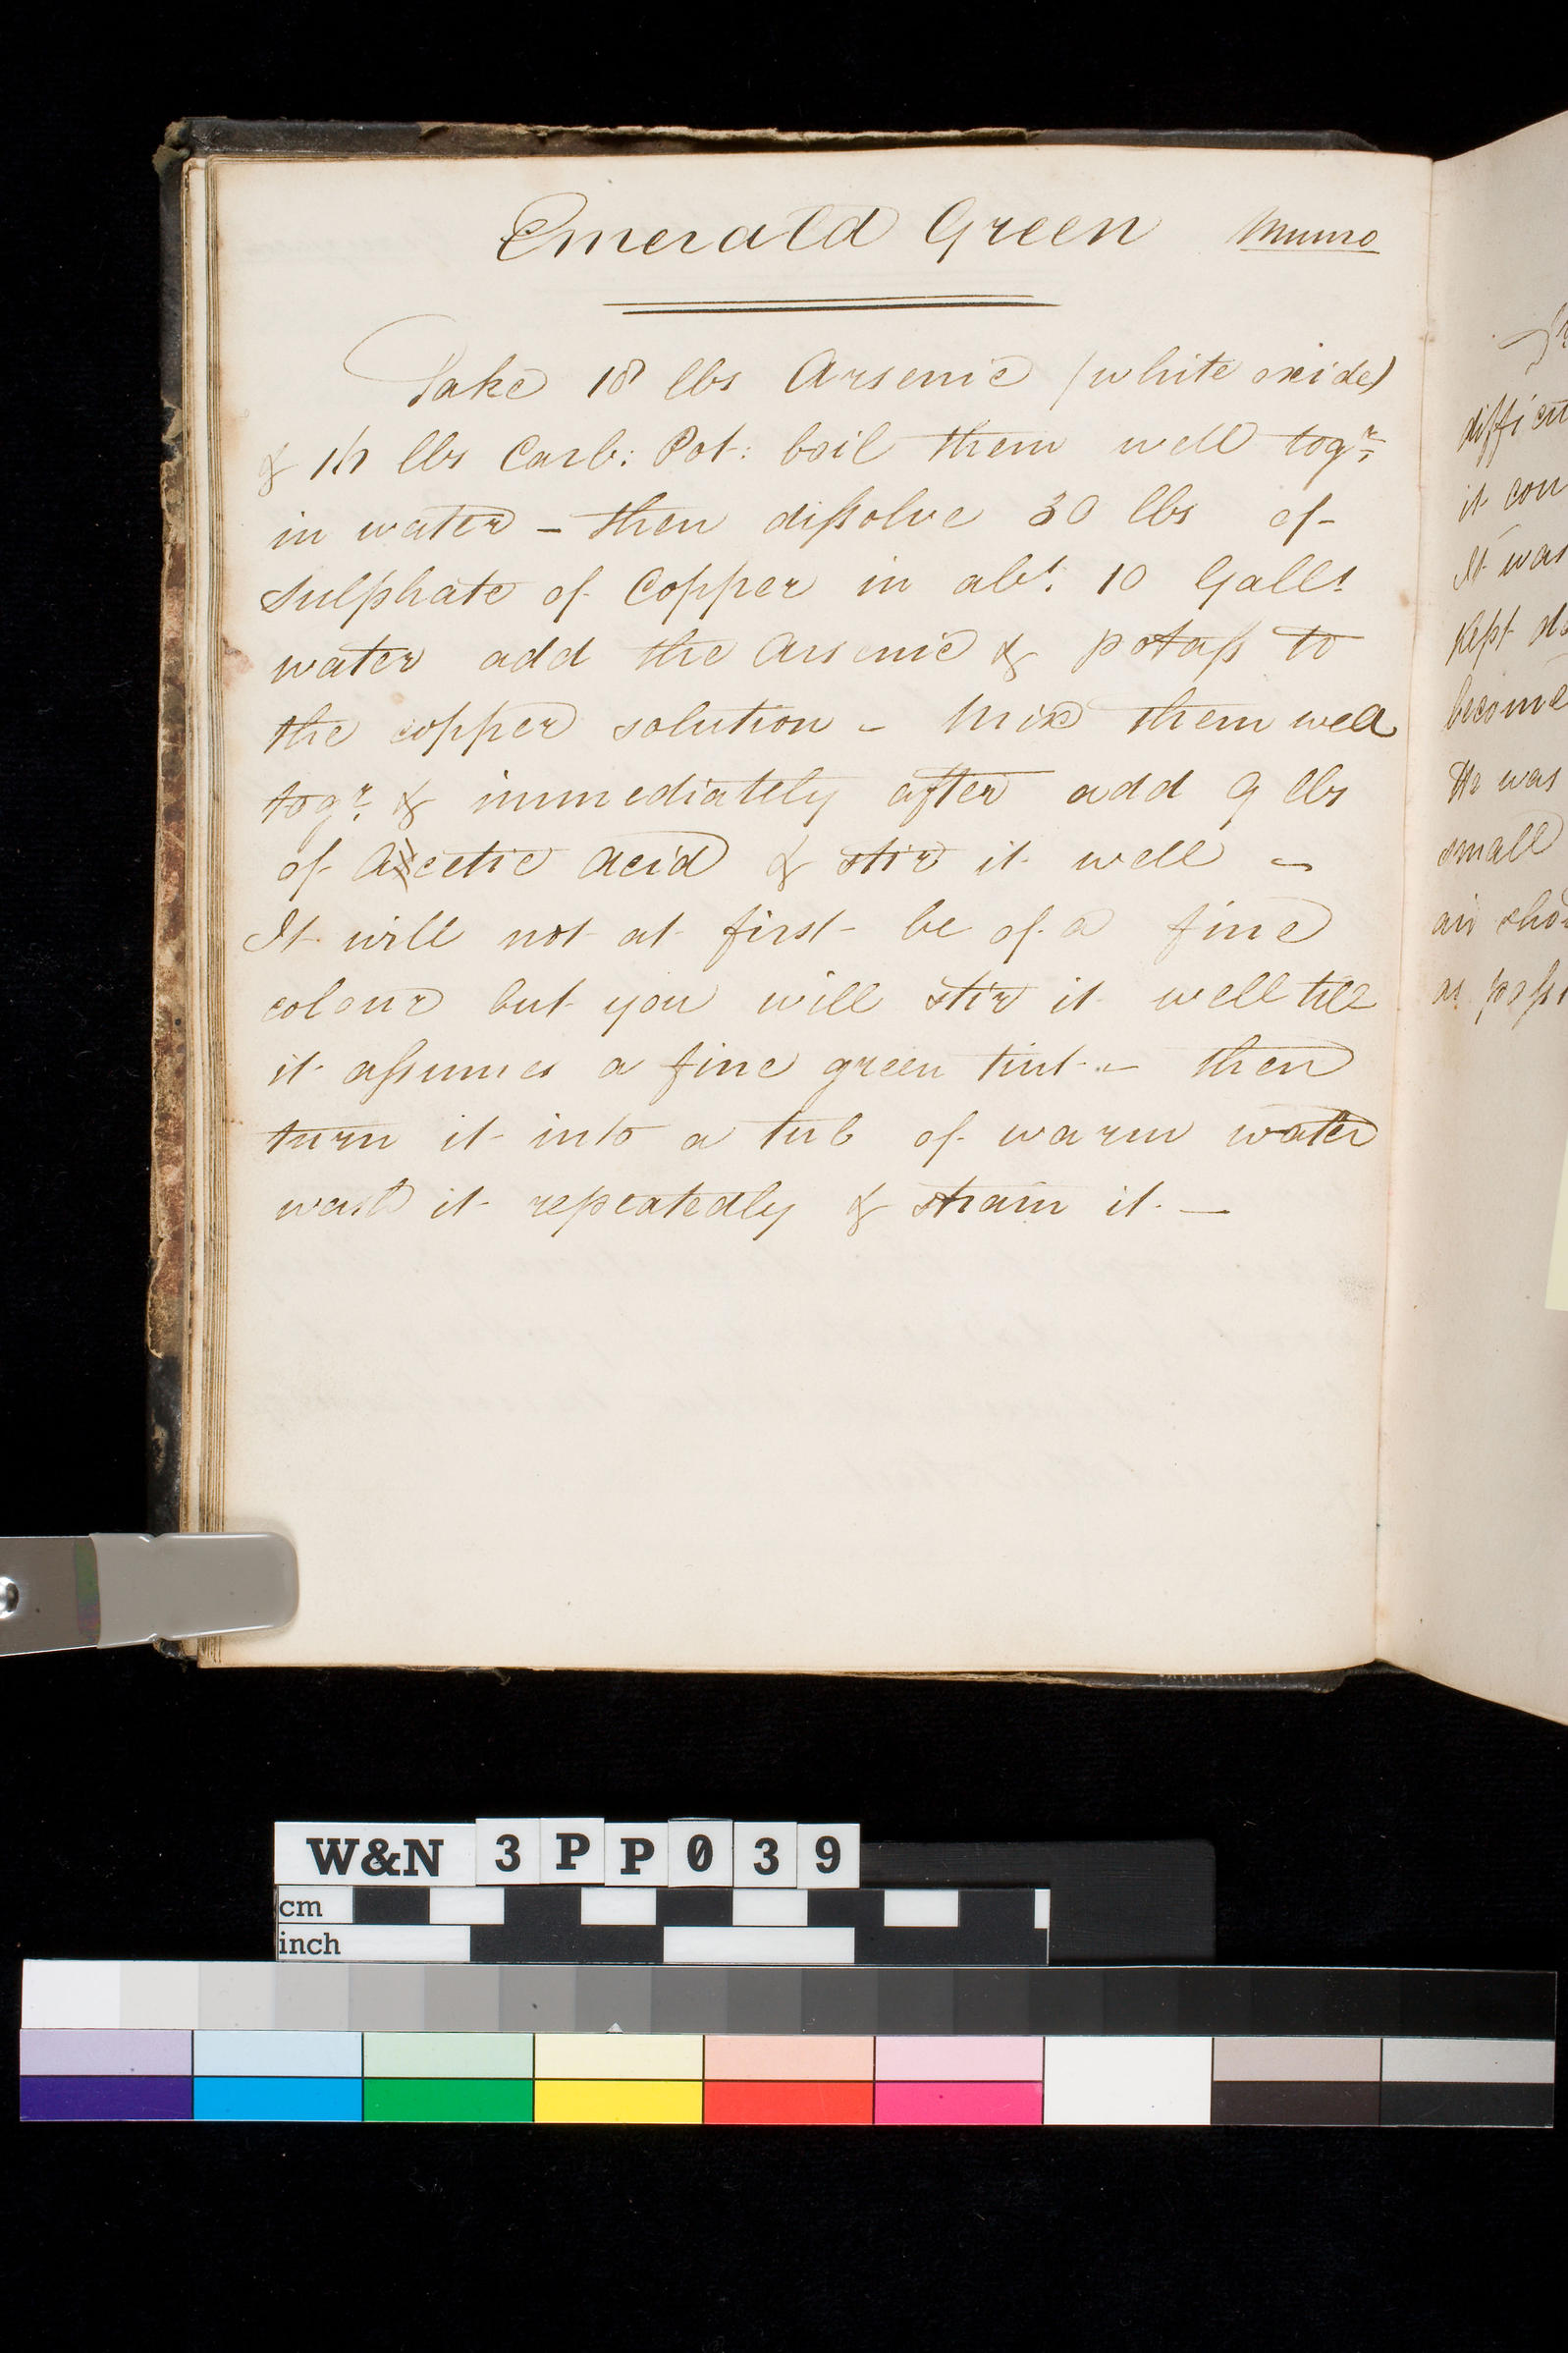 Emerald Green Munro
Take 18 lbs Arsenic (white oxide)
& lbs Carb: Pot: boil them well togr.
in water - then dissolve 30 lbs of
Sulphate of Copper in abt. 10 Galls
water add the Arsenic & potass to
the copper solution - Mix them well
togr. & immediately after add 9 lbs
of Acetic Acid & stir it well -
It will not at first be of a fine
colour but you will stir it well till
it assumes a fine green tint - then
turn it into a tub of warm water
wash it repeatedly & strain it. -
it con
It was
kept
become
was
small
air sho
as possi
W&N 3PP039
cm
inch